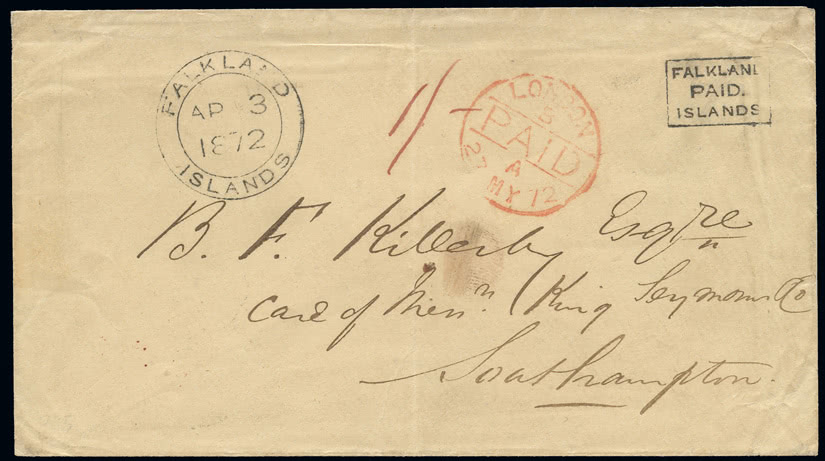 FALKLAND ISLANDS
AP 3
1872
1/-
LONDON
5
PAID
A
27 MY 72
FALKLAN
PAID.
ISLANDS
B. F. Killerby Esqre
Care of Messrs King Seymour & Co
Southampton.